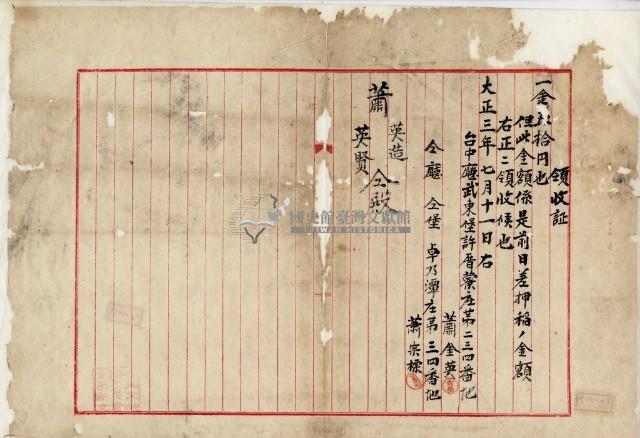 領收証
一金五拾円也
但此金額係是前日差押稻ノ金額
右正ニ領收候也
大正三年七月十一日右
台中廳武東堡許厝藔庄第二三四番地
蕭金英
仝廳仝堡卓乃潭庄第三四番地
蕭宗標
蕭英造
英賢仝殿
國史館臺灣文獻館
TAIWAN HISTORICA